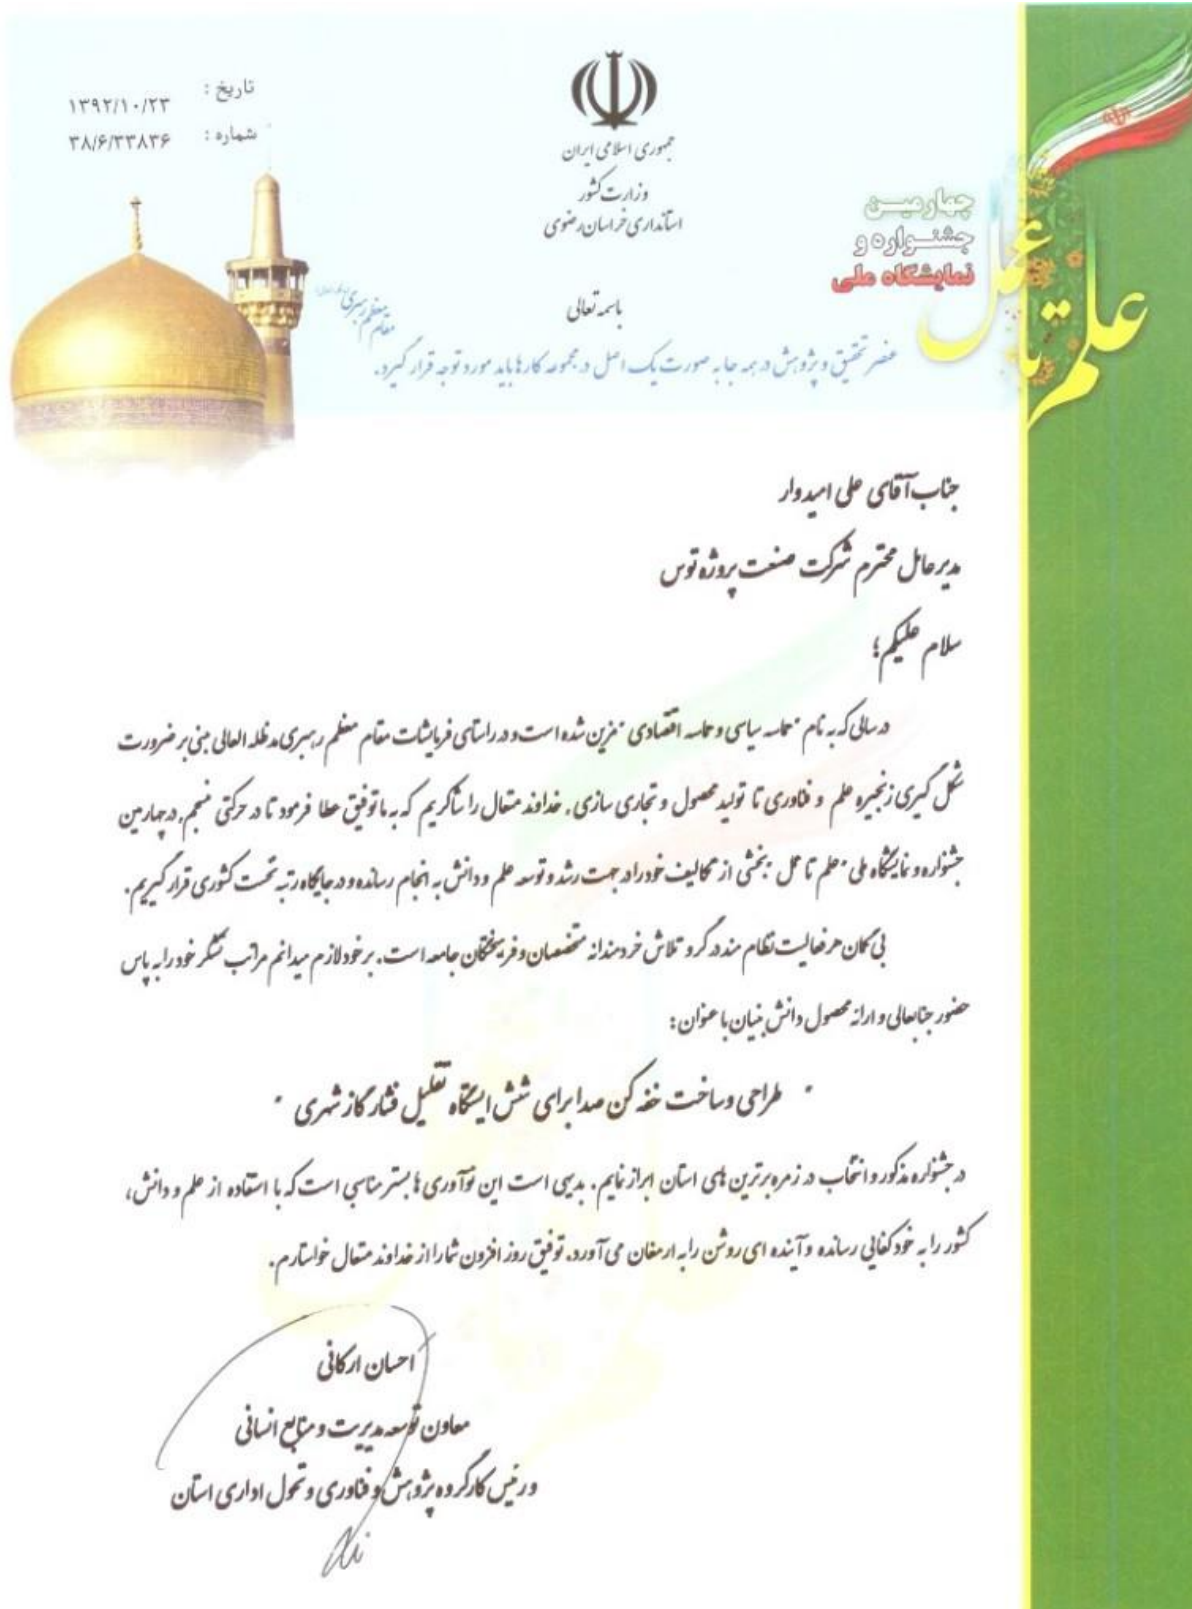 تاریخ : ۱۳۹۲/۱۰/۲۳
شماره : ۳۸/۶/۳۳۸۳۶
جمهوری اسلامی ایران
وزارت کشور
استانداری خراسان رضوی
چهارمین
جشنواره و
نمایشگاه ملی
علم تا عمل
باسمه تعالی
عنصر تحقیق و پژوهش در همه جا به صورت یک اصل در مجموعه کارها باید مورد توجه قرار گیرد.
مقام معظم رهبری
جناب آقای علی امیدوار
مدیرعامل محترم شرکت صنعت پروژه توس
سلام علیکم؛
در سالی که به نام "حماسه سیاسی و حماسه اقتصادی" مزین شده است و در راستای فرمایشات مقام معظم رهبری مدظله العالی مبنی بر ضرورت
شکل گیری زنجیره علم و فناوری تا تولید محصول و تجاری سازی، خداوند متعال را شاکریم که به ما توفیق عطا فرمود تا در حرکتی منسجم، در چهارمین
جشنواره و نمایشگاه ملی "علم تا عمل" بخشی از تکالیف خود را در جهت رشد و توسعه علم و دانش به انجام رسانده و در جایگاه رتبه نخست کشوری قرار گیریم.
بی گمان هر فعالیت نظام مند در گرو تلاش خردمندانه متخصصان و فریختگان جامعه است. بر خود لازم میدانم مراتب تشکر خود را به پاس
حضور جنابعالی و ارائه محصول دانش بنیان با عنوان:
" طراحی و ساخت خفه کن صدا برای شش ایستگاه تقلیل فشار گاز شهری "
در جشنواره مذکور و انتخاب در زمره برترین های استان ابراز نمایم. بدیهی است این نوآوری ها بستر مناسبی است که با استفاده از علم و دانش،
کشور را به خودکفایی رسانده و آینده ای روشن را به ارمغان می آورد. توفیق روز افزون شما را از خداوند متعال خواستارم.
احسان ارکانی
معاون توسعه مدیریت و منابع انسانی
و رئیس کارگروه پژوهش و فناوری و تحول اداری استان